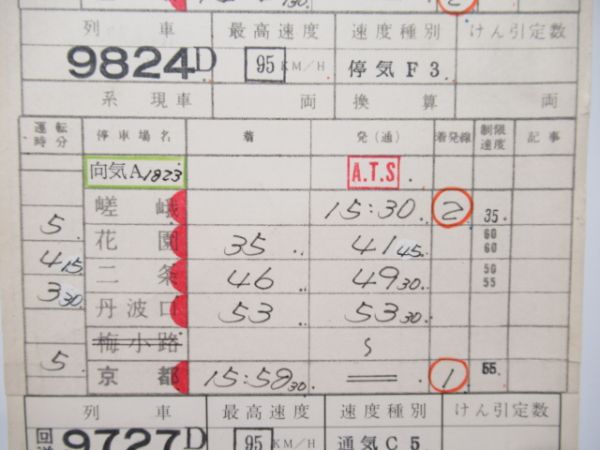 列車 最高速度 速度種別 けん引定数
9824D 95 KM/H 停気F3
系現車 両 換算 両
運転時分 停車場名 着 発(通) 着発線 制限速度 記事
向気A1823 A.T.S
嵯峨 15:30 2 35
5 花園 35 41 45 60 60
4 15 二条 46 49 30 50 55
3 30 丹波口 53 53 30
梅小路
5 京都 15:58 30 1 55
列車 最高速度 速度種別 けん引定数
9727D 95 KM/H 通気C5